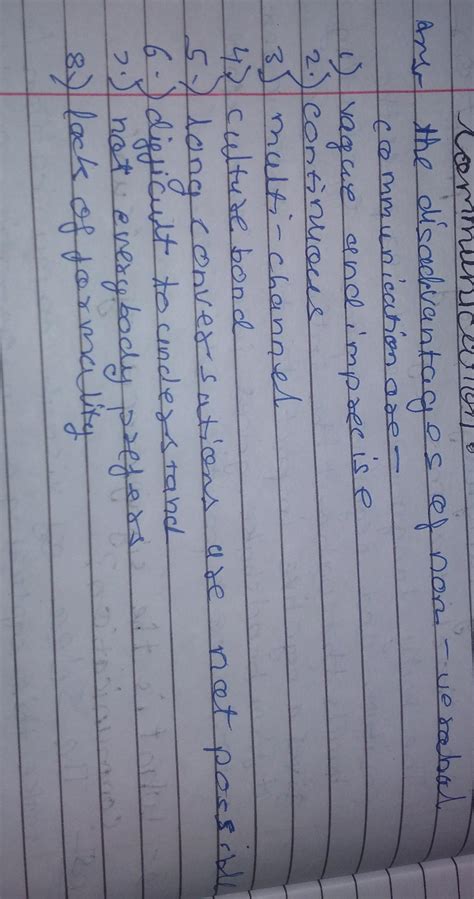 communication.
Ans. the disadvantages of non-verabal
communication are-
1) vague and imprecise
2.) continuous
3) multi-channel
4) culture bond
5.) long conversations are not possible
6.) difficult to understand
7.) not everybody prefers
8.) lack of formality